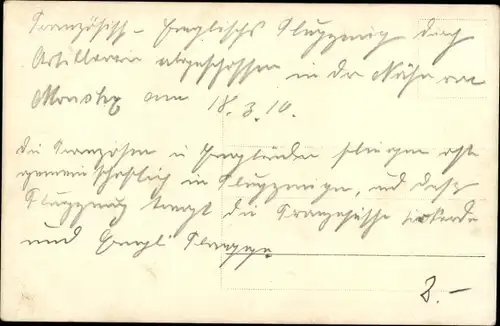 Französisch - Englisches Flugzeug durch
Artillerie abgeschossen in der Nähe von
am 18.3.16.
die Franzosen u Engländer fliegen oft
gemeinschaftlich in Flugzeugen, und dieses
Flugzeug trägt die Französische
und Engl Flagge.
8.-